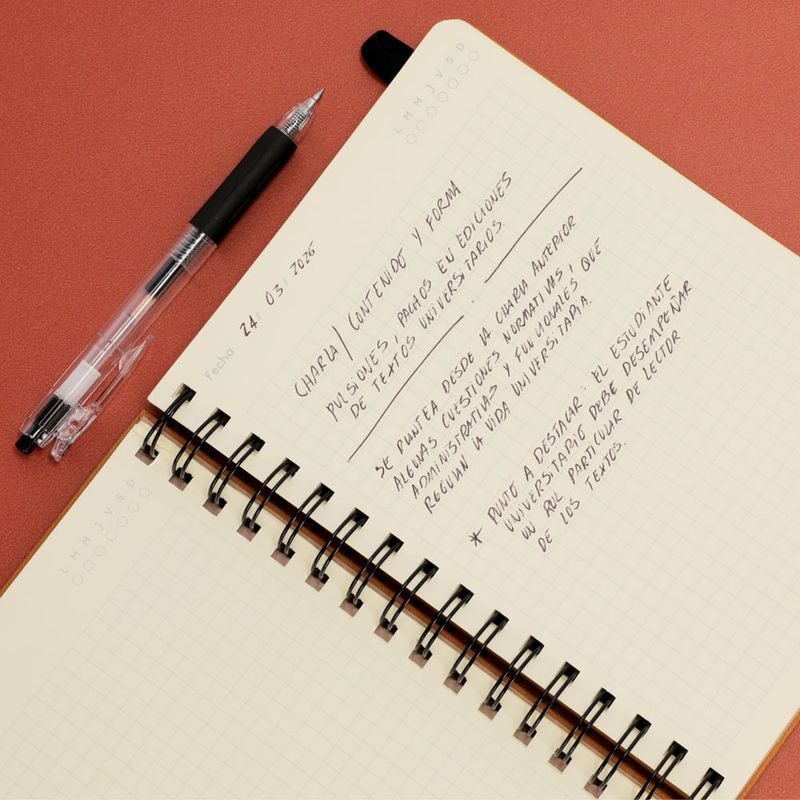 L M M J V S D
Fecha 24 / 03 / 2026
CHARLA / CONTENIDO Y FORMA
PULSIONES, PACHOS EN EDICIONES
DE TEXTOS UNIVERSITARIOS.
SE PUNTEA DESDE LA CHARLA ANTERIOR
ALGUNAS CUESTIONES NORMATIVAS,
ADMINISTRATIVAS Y FUNCIONALES QUE
REGULAN LA VIDA UNIVERSITARIA.
* PUNTO A DESTACAR: EL ESTUDIANTE
UNIVERSITARIO DEBE DESEMPEÑAR
UN ROL PARTICULAR DE LECTOR
DE LOS TEXTOS.
L M M J V S D